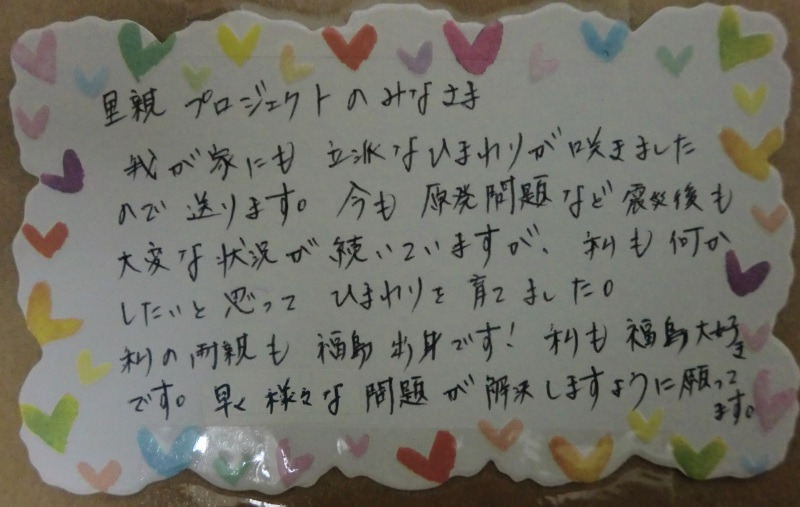 里親 プロジェクトのみなさま
我が家にも 立派なひまわりが咲きました
ので 送ります。 今も 原発問題など 震災後も
大変な状況が 続いていますが、 私も 何か
したいと 思って ひまわりを 育てました。
私の両親も 福島出身です! 私も 福島大好き
です。 早く 様々な 問題が 解決しますように願って
ます。